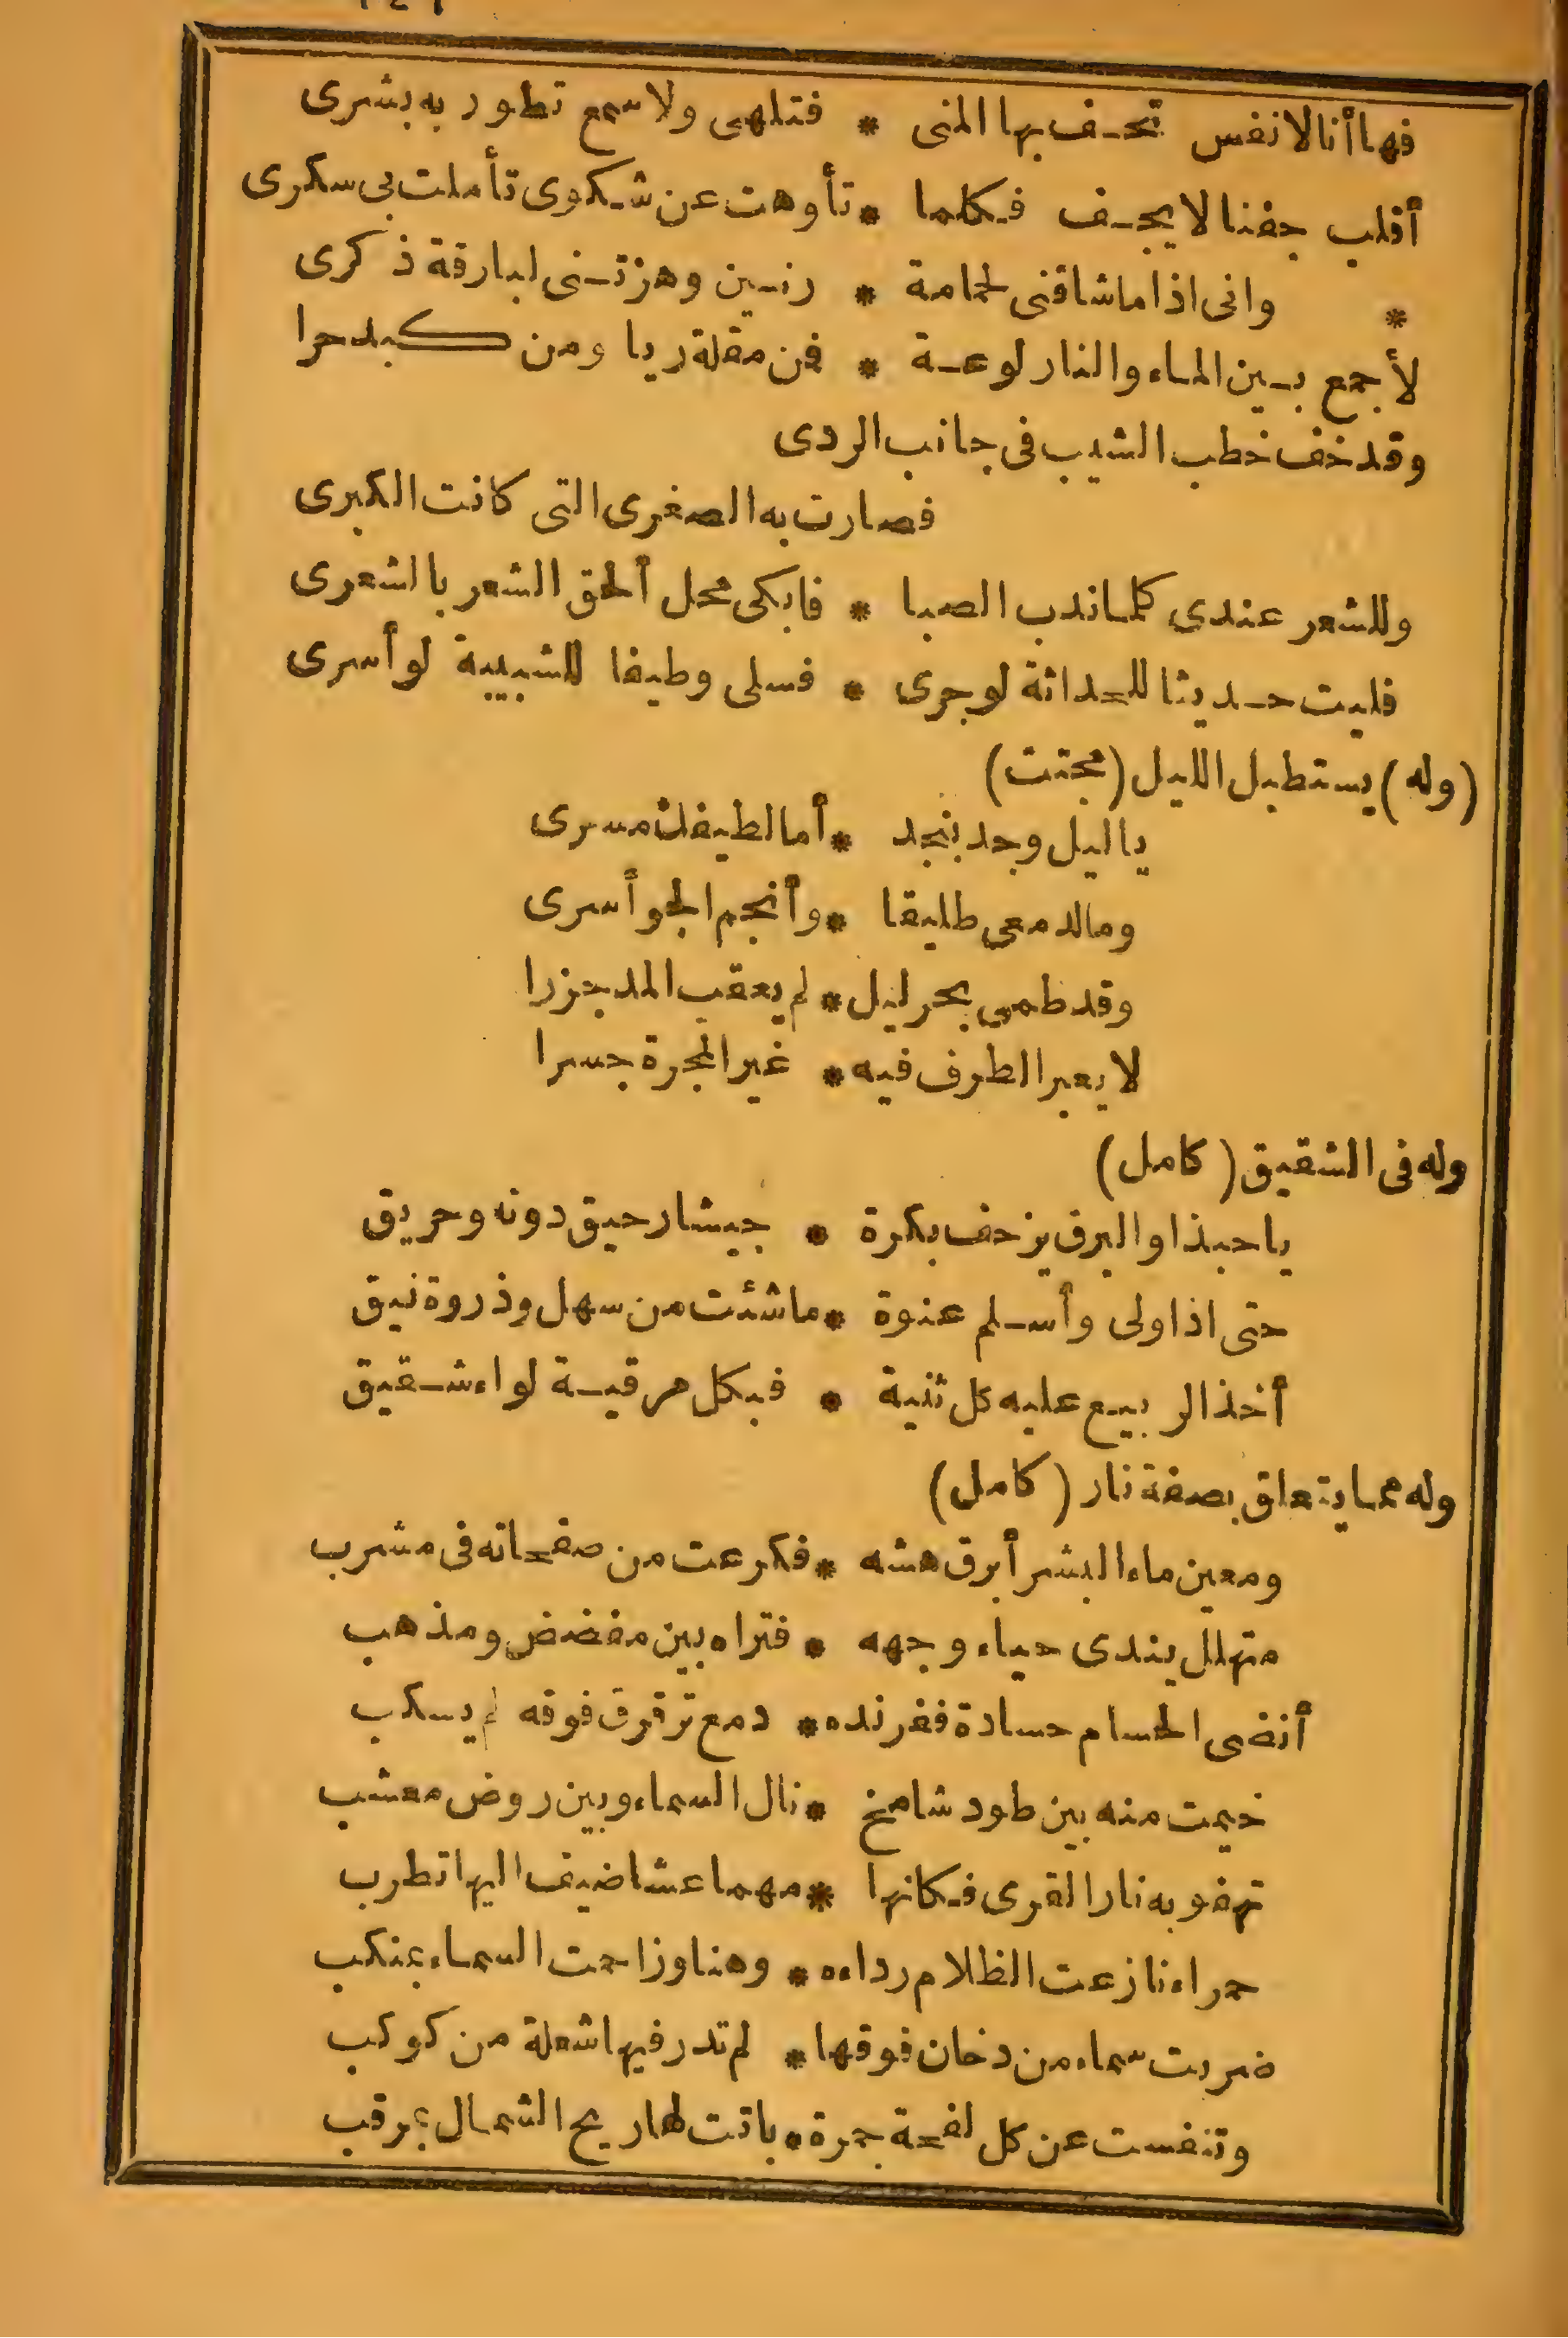 فها أنا لا نفس تحف بها المنى * فتلهى ولا سمع تطور به بشرى
أقلب جفنا لا يجف فكلما * تأوهت عن شكوى تأملت بى سكرى
* وانى اذا ما شاقنى لحمامة * رنين وهزتنى لبارقة ذكرى
لأجمع بين الماء والنار لوعة * فمن مقلة ريا ومن كبد حرا
وقد خف خطب الشيب فى جانب الردى
فصارت به الصغرى التى كانت الكبرى
وللشعر عندى كلما ندب الصبا * فابكى محل ألحق الشعر بالشعرى
فليت حديثا للحداثة لو جرى * فسلى وطيفا للشبيبة لو أسرى
(وله) يستطيل الليل (مجتث)
يا ليل وجد بنجد * أما لطيفك مسرى
وما لدمعى طليقا * وأنجم الجو أسرى
وقد طمى بحر ليل * لم يعقب المد جزرا
لا يعبر الطرف فيه * غير المجرة جسرا
وله فى الشقيق (كامل)
يا حبذا والبرق يزحف بكرة * جيشا رحيق دونه وحريق
حتى اذا ولى وأسلم عنوة * ما شئت من سهل وذروة نيق
أخذ الربيع عليه كل ثنية * فبكل مرقبة لواء شقيق
وله مما يتعلق بصفة نار (كامل)
ومعين ماء البشر أبرق هشه * فكرعت من صفحاته فى مشرب
متهلل يندى حياء وجهه * فتراه بين مفضض ومذهب
أنضى الحسام حسادة ففرنده * دمع ترقرق فوقه لم يسكب
خيمت منه بين طود شامخ * نال السماء وبين روض معشب
تهفو به نار القرى فكانها * مهما عشا ضيف اليها تطرب
حمراء نازعت الظلام رداءه * وهنا وزاحمت السماء بمنكب
ضربت سماء من دخان فوقها * لم تدر فيها شعلة من كوكب
وتنفست عن كل لفحة جمرة * باتت لها ريح الشمال بمرقب